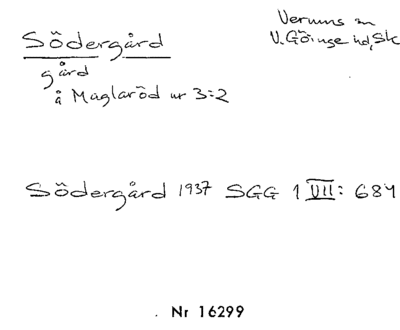 Södergård
Verums sn
V. Göinge hd, Sk
gård
å Maglaröd nr 3:2
Södergård 1937 SGG 1 VII: 684
Nr 16299